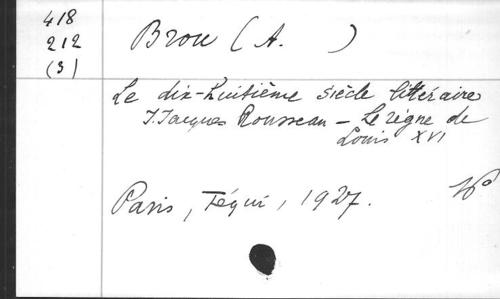 418
212
(3)
Brou (A. )
Le dix-huitième siècle littéraire
J. Jacques Rousseau - Le règne de
Louis XVI
Paris, Téqui, 1927.